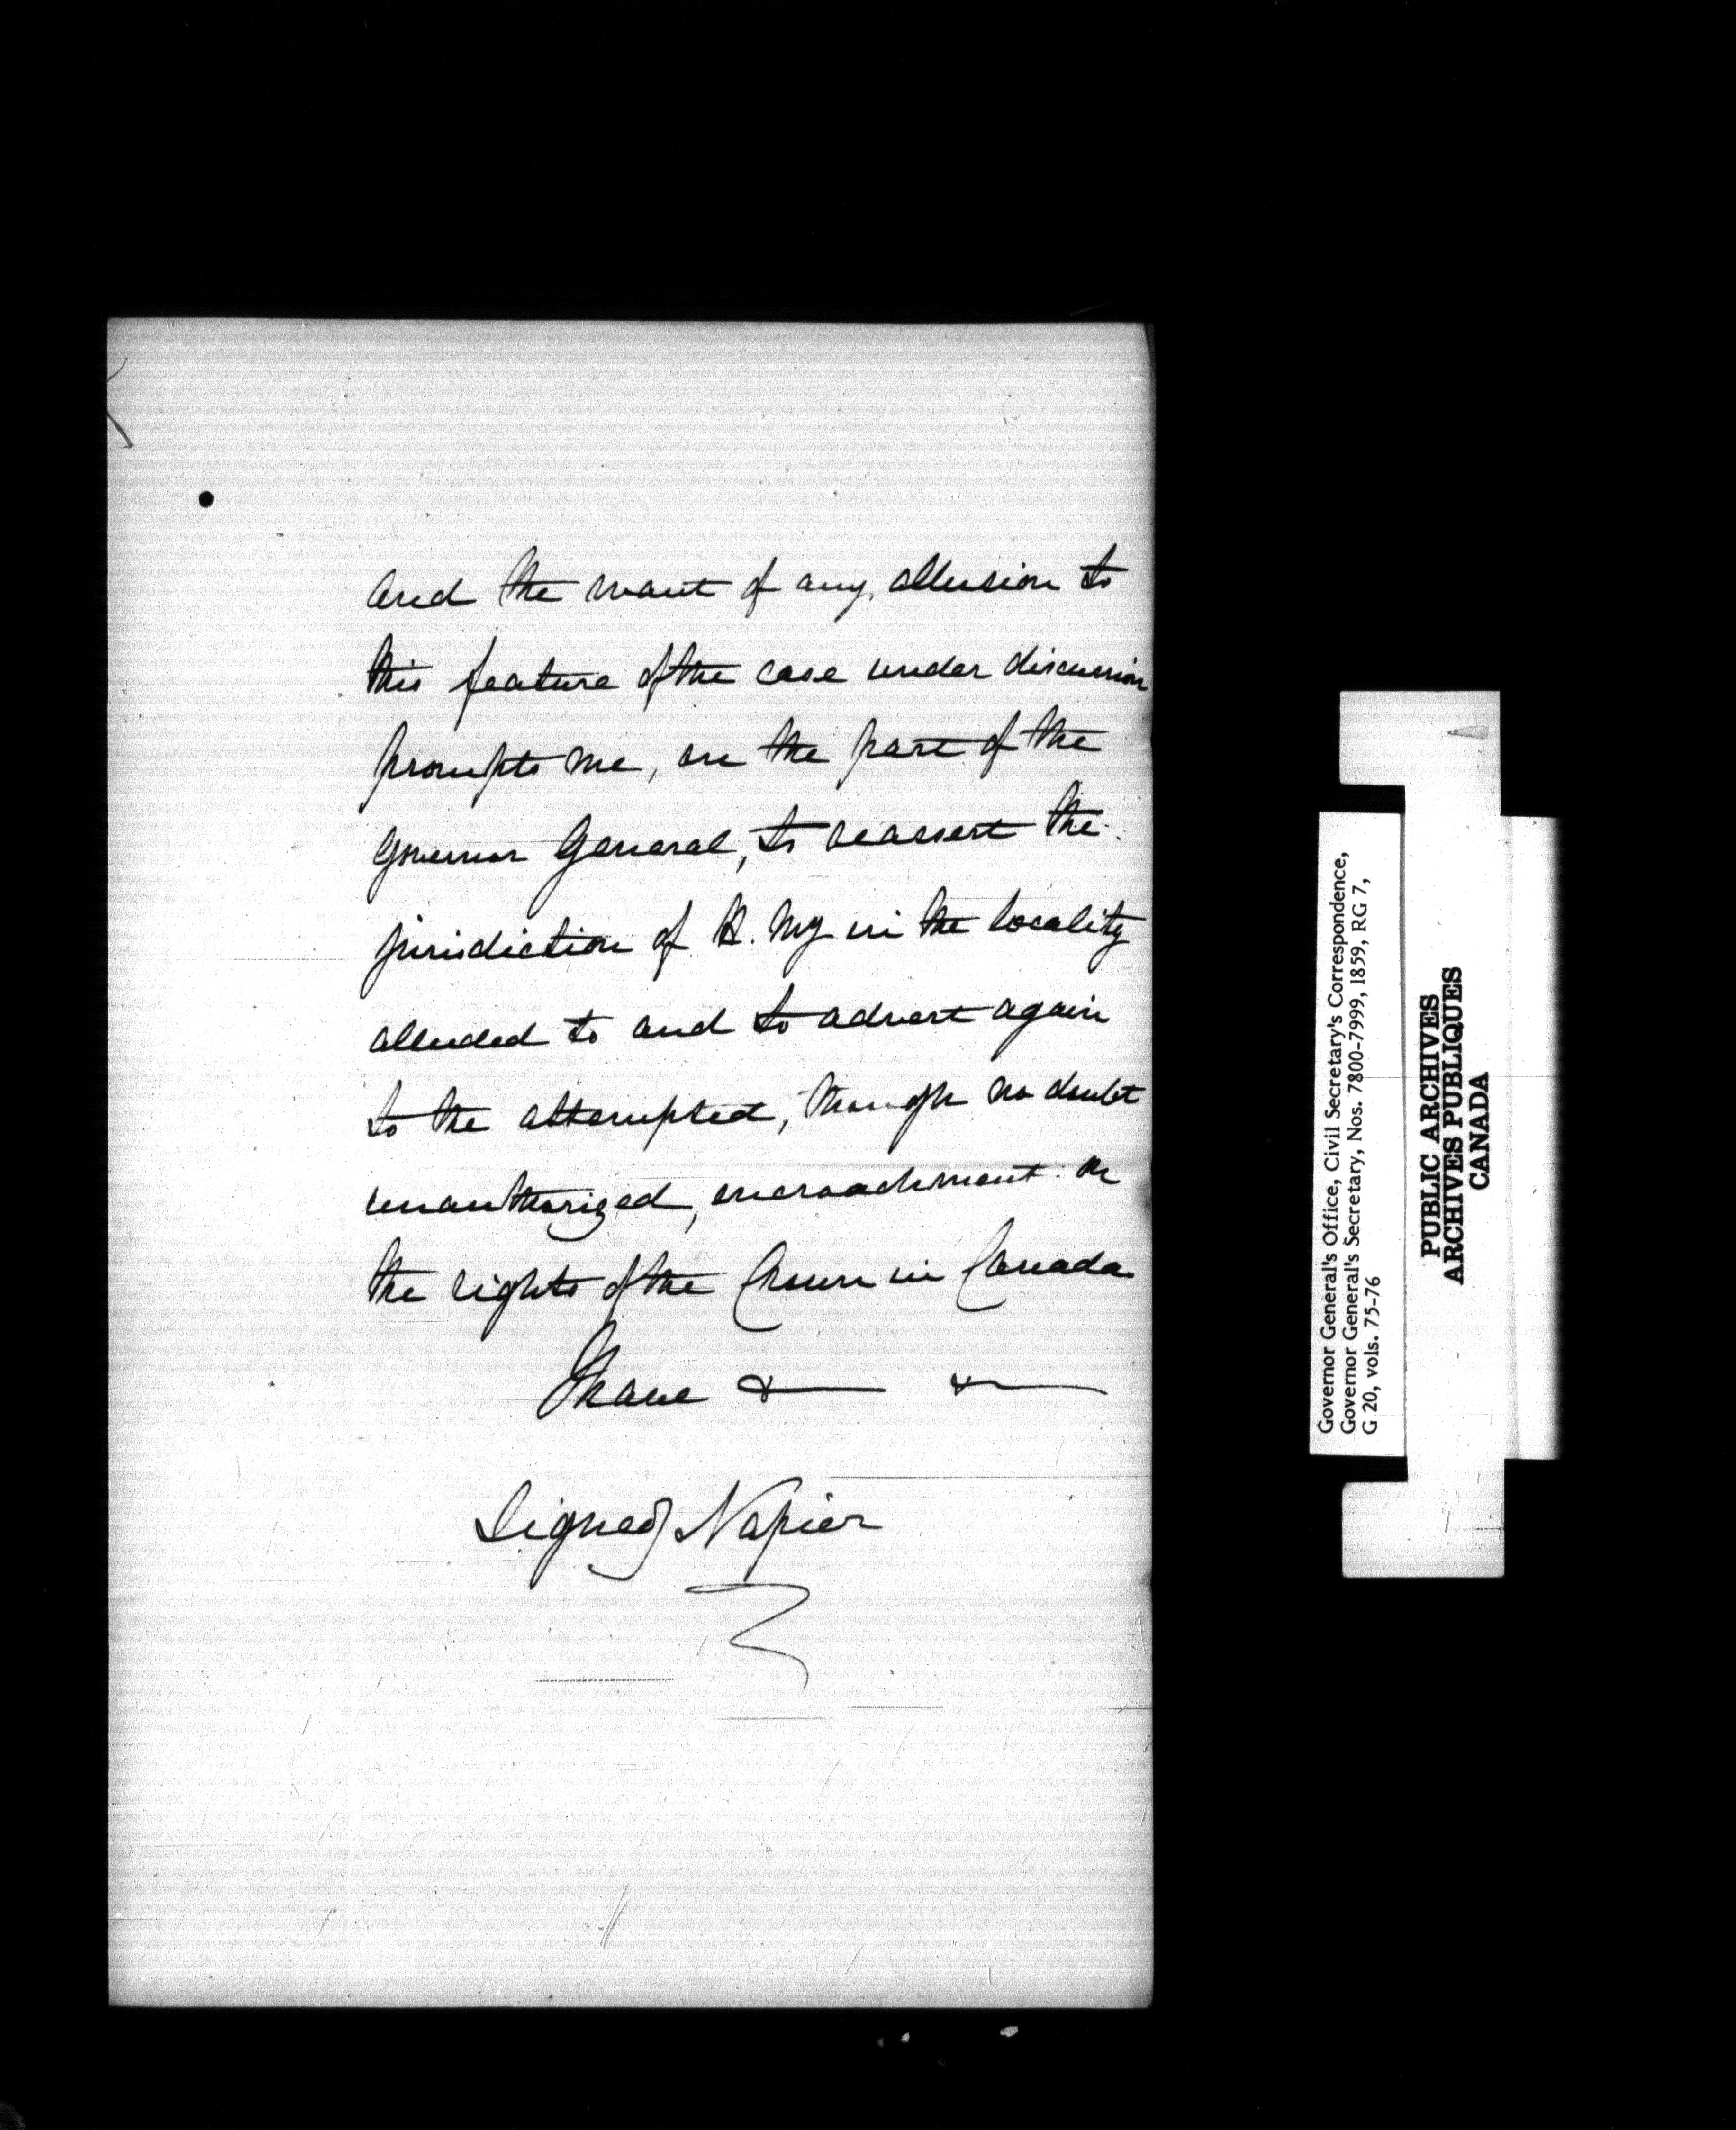 and the want of any allusion to
this feature of the case under discussion
prompts me, on the part of the
Governor General, to reassert the
jurisdiction of H. My in the locality
alluded to and to advert again
to the attempted, though no doubt
unauthorized, encroachment on
the rights of the Crown in Canada.
I have & &
Signed) Napier
Governor General's Office, Civil Secretary's Correspondence,
Governor General's Secretary, Nos. 7800-7999, 1859, RG 7,
G 20, vols. 75-76
PUBLIC ARCHIVES
ARCHIVES PUBLIQUES
CANADA